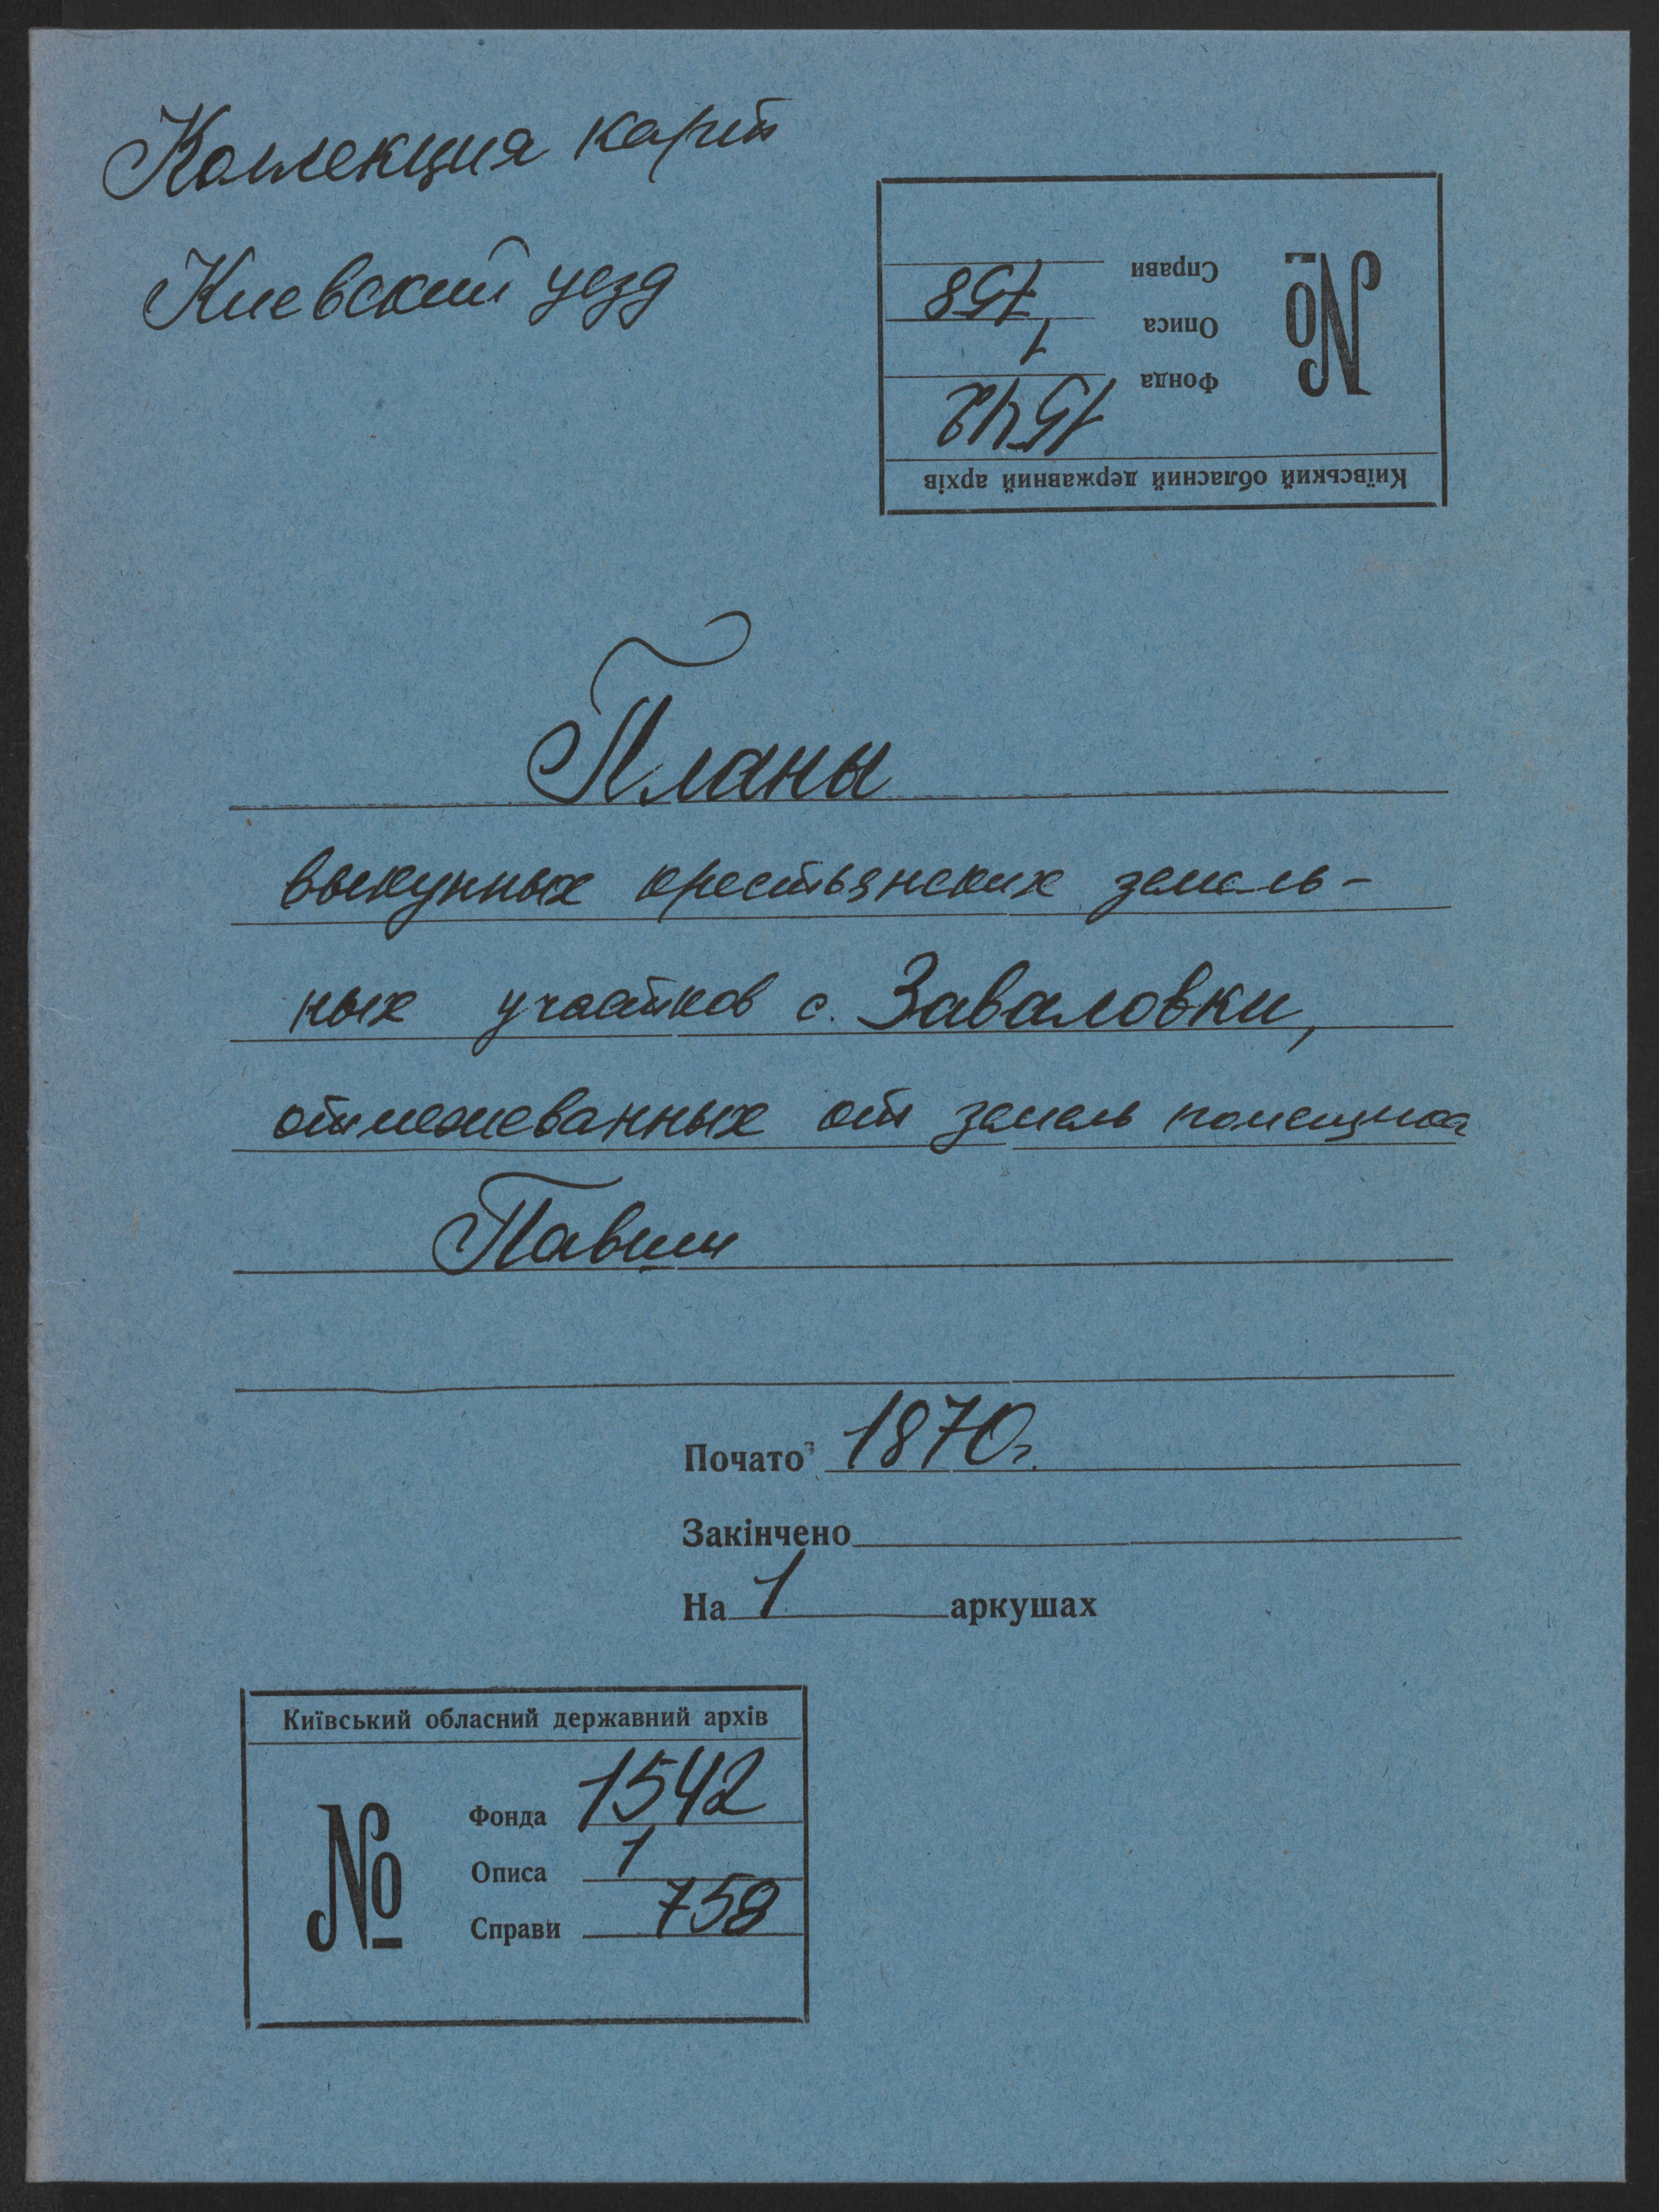 Коллекция карт
Киевский уезд
Київський обласний державний архів
№
Фонда 1542
Описа 1
Справи 758
Планы
выкупных крестьянских земель-
ных участков с. Заваловки,
отмежеванных от земель помещика
Почато 1870г.
Закінчено
На 1 аркушах
Київський обласний державний архів
№
Фонда 1542
Описа 1
Справи 758